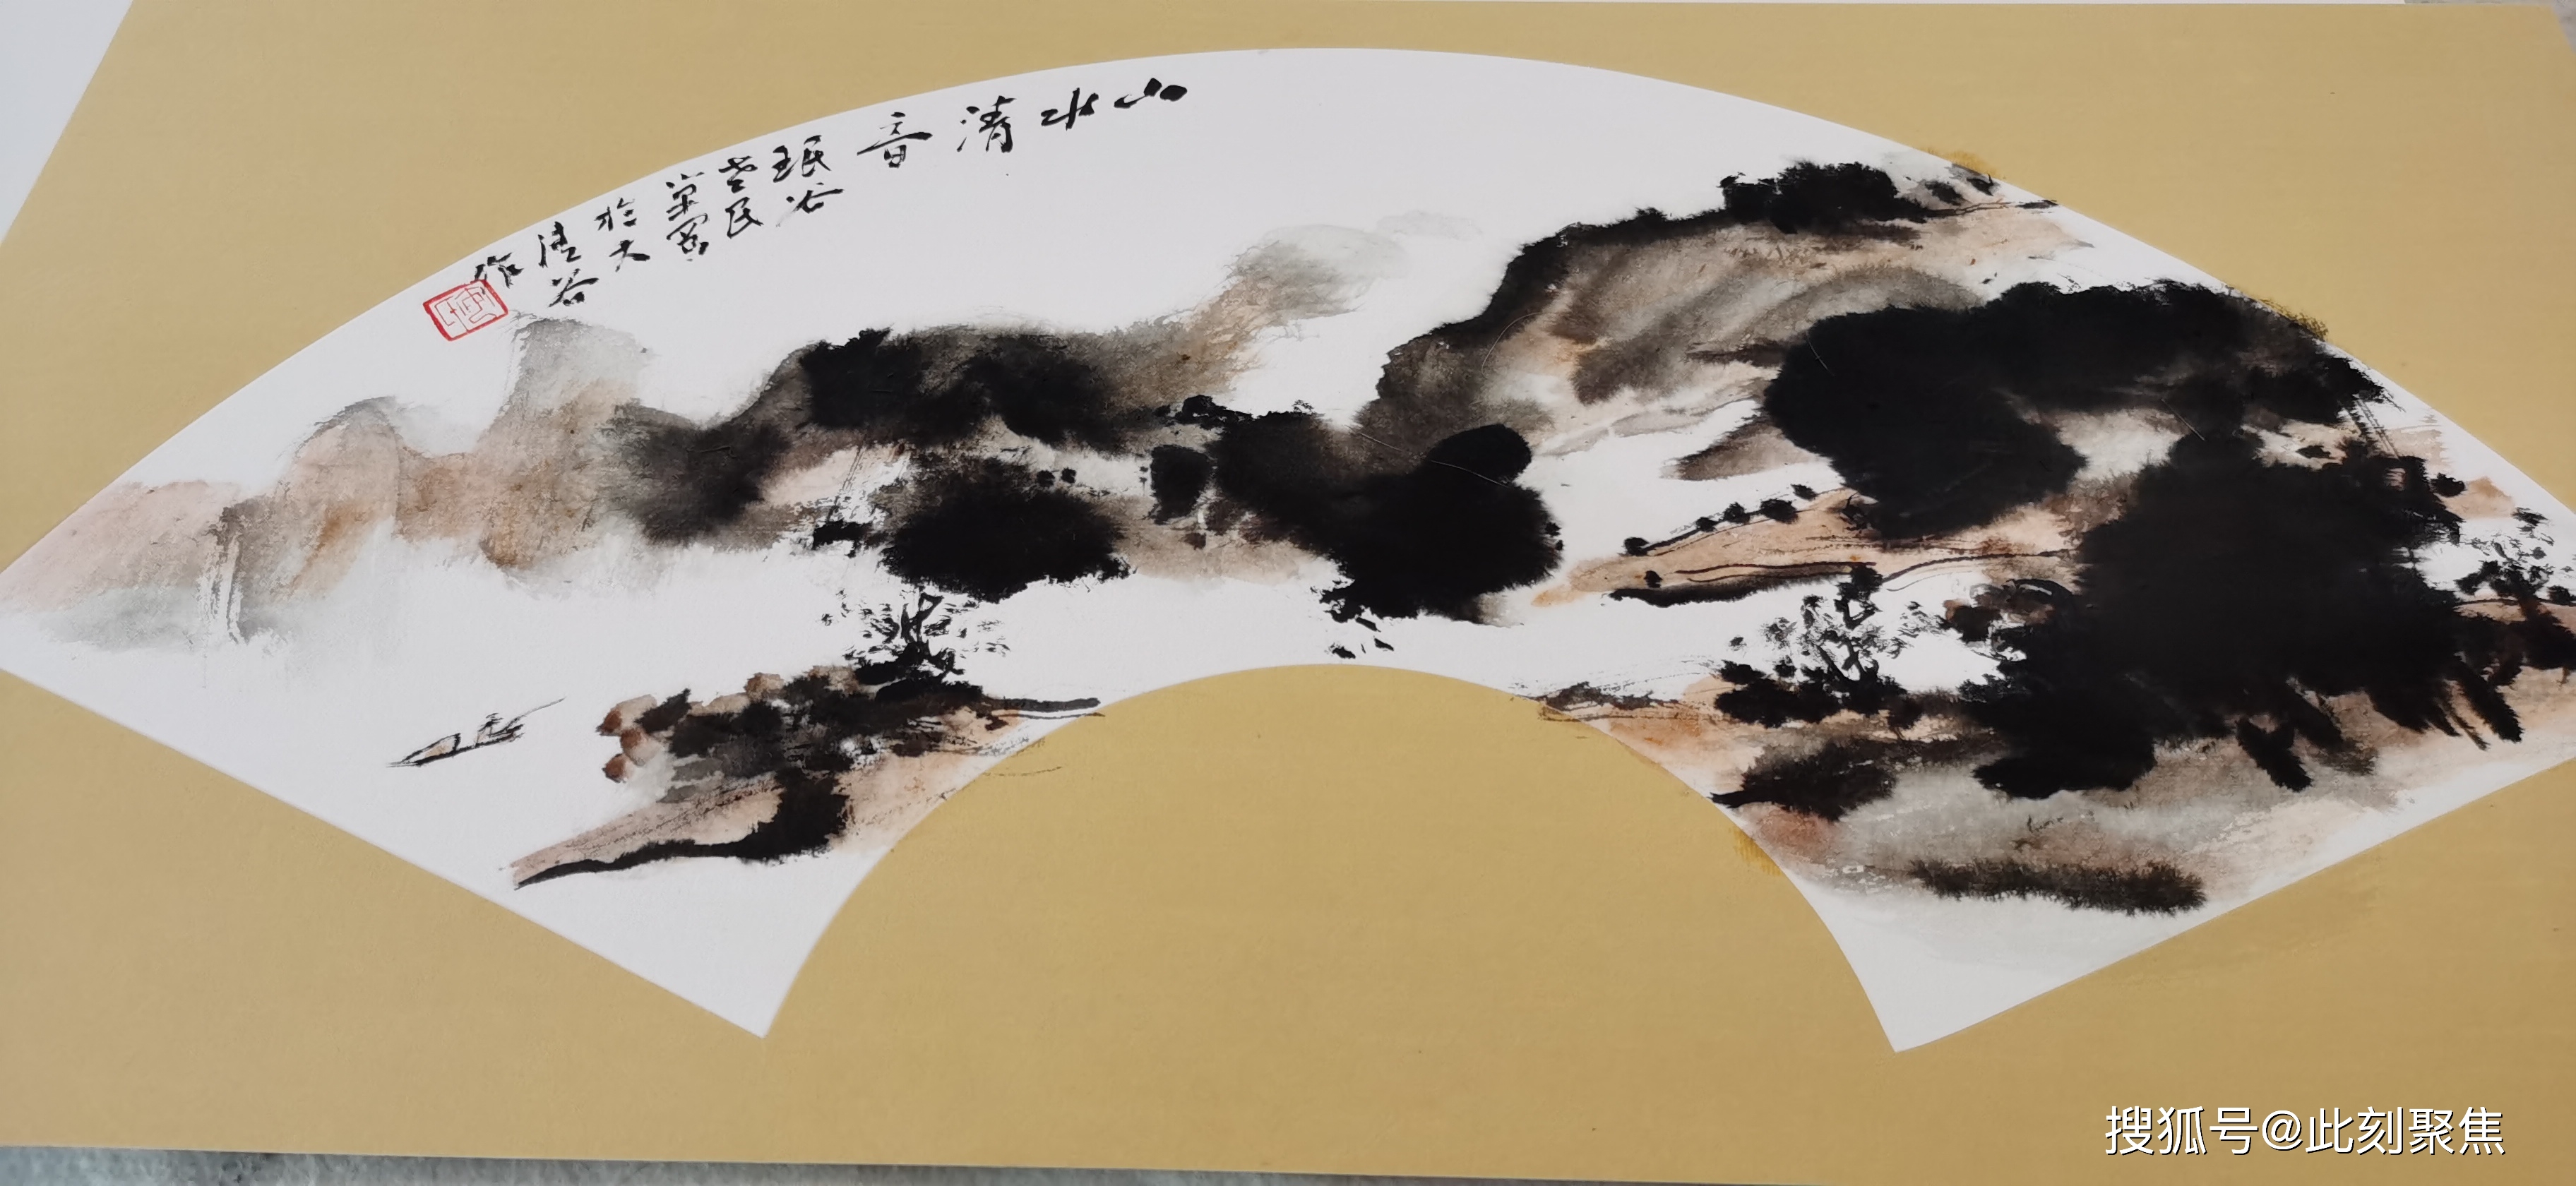 山水清音
珉谷
老民
於大
清谷
作
搜狐号@此刻聚焦